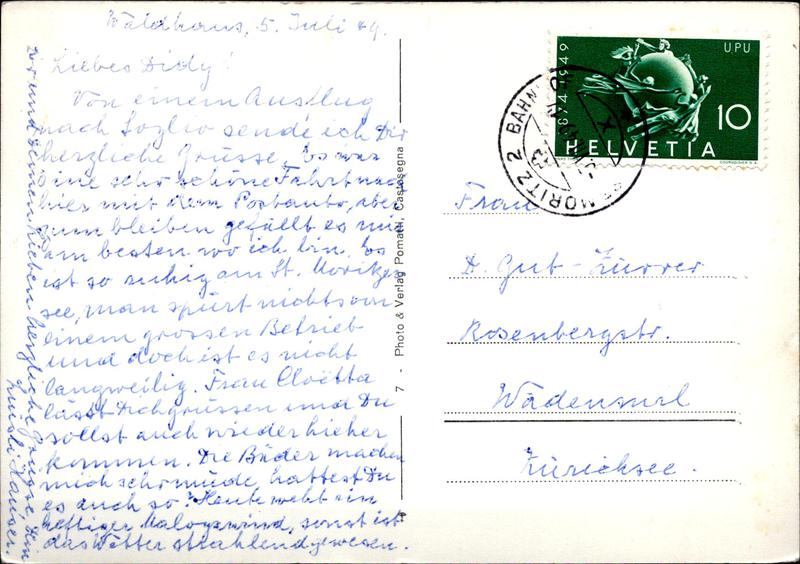 Waldhaus, 5. Juli 49.
Liebes Didy!
Von einem Ausflug
nach Soglio sende ich Dir
herzliche Grüsse. Es war
eine sehr schöne Fahrt nach
hier mit dem Postauto, aber
zum bleiben gefällt es mir
am besten wo ich bin. Es
ist so ruhig am St. Moritzer
see, man spürt nichts von
einem grossen Betrieb
und doch ist es nicht
langweilig. Frau Cloëtta
lässt Dich grüssen und Du
sollst auch wieder hieher
kommen. Die Bäder machen
mich sehr müde, hattest Du
es auch so? Heute weht ein
heftiger Malojawind, sonst ist
das Wetter strahlend gewesen.
Dir und Deinen Lieben herzliche Grüsse, Dein
7 - Photo & Verlag Pomatti, Castasegna
1874-1949
UPU
10
HELVETIA
COURVOISIER S.A.
ST. MORITZ 2 BAHNHOF
Frau
D. Gut-Zürrer
Rosenbergstr.
Wädenswil
Zürichsee.